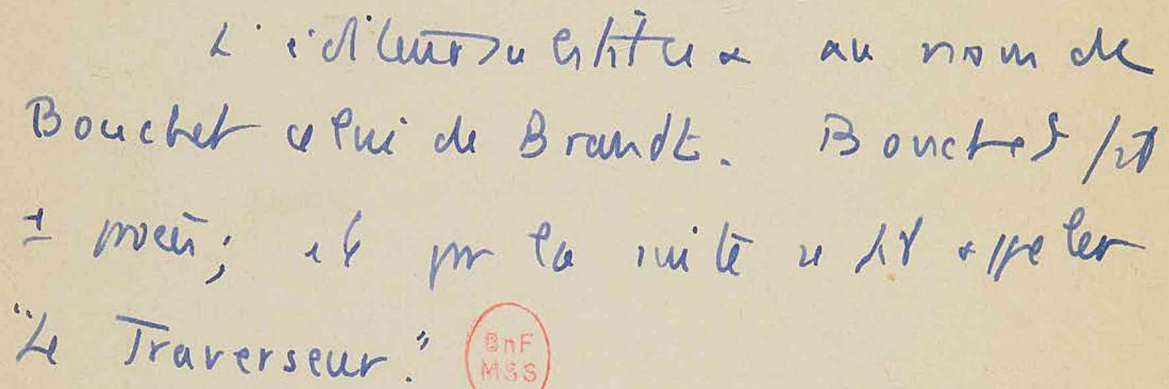 L'éditeur substitua au nom de
Bouchet celui de Brandt. Bouchet fit
1 procès; et par la suite se fit appeler
"Le Traverseur."
BnF
MSS